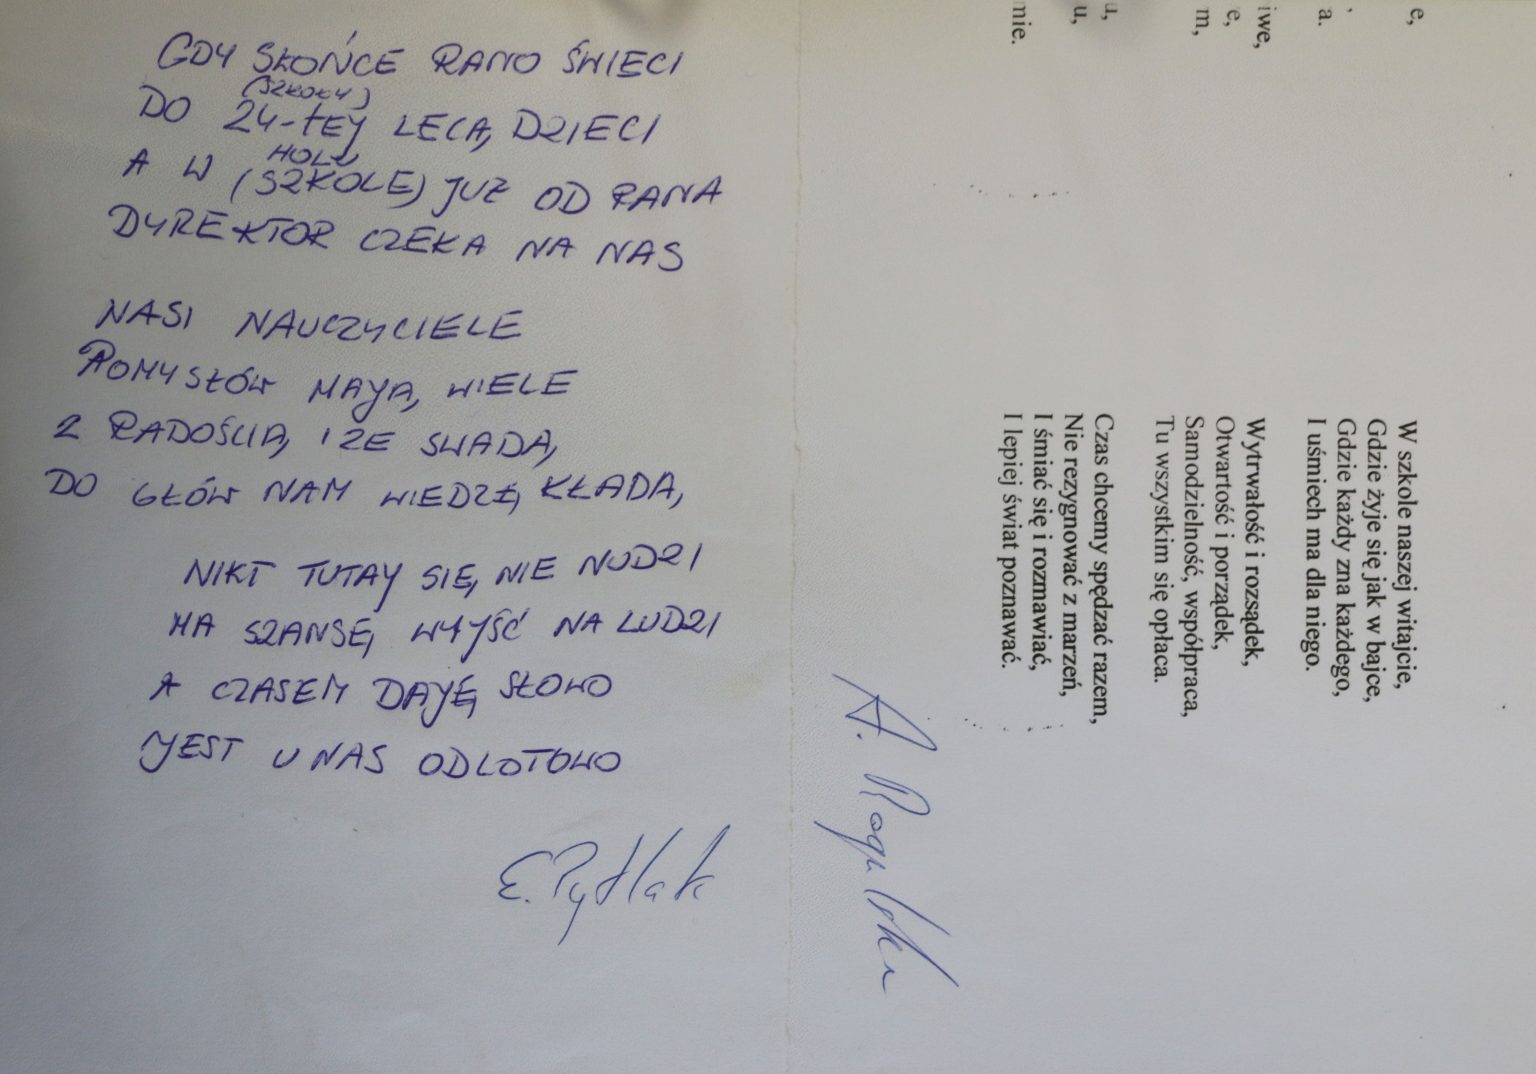 GDY SŁOŃCE RANO ŚWIECI
(SZKOŁY)
DO 24-TEJ LECĄ DZIECI
HOLU
A W (SZKOLE) JUŻ OD RANA
DYREKTOR CZEKA NA NAS
NASI NAUCZYCIELE
POMYSŁÓW MAJĄ WIELE
Z RADOŚCIĄ I ZE SWADĄ
DO GŁÓW NAM WIEDZĘ KŁADĄ
NIKT TUTAJ SIĘ NIE NUDZI
MA SZANSĘ WYJŚĆ NA LUDZI
A CZASEM DAJĘ SŁOWO
JEST U NAS ODLOTOWO
E. Pytlak
W szkole naszej witajcie,
Gdzie żyje się jak w bajce,
Gdzie każdy zna każdego,
I uśmiech ma dla niego.
Wytrwałość i rozsądek,
Otwartość i porządek,
Samodzielność, współpraca,
Tu wszystkim się opłaca.
Czas chcemy spędzać razem,
Nie rezygnować z marzeń,
I śmiać się i rozmawiać,
I lepiej świat poznawać.
A. Rogulska
e,
,
a.
iwe,
e,
m,
u,
u,
nie.